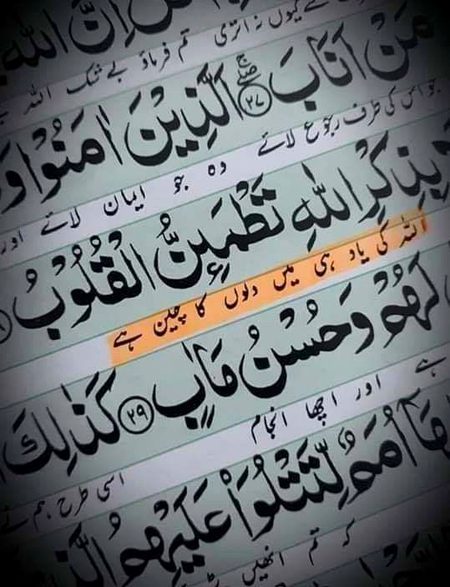 اِنَّ اللّٰهَ
کیوں نہ اتری تم فرماؤ بے شک اللہ
مَنْ اَنَابَ ﴿۲۷﴾ اَلَّذِیْنَ اٰمَنُوْا وَ
جو اس کی طرف رجوع لائے وہ جو ایمان لائے اور
بِذِكْرِ اللّٰهِ تَطْمَىِٕنُّ الْقُلُوْبُ
اللہ کی یاد ہی میں دلوں کا چین ہے
لَهُمْ وَ حُسْنُ مَاٰبٍ ﴿۲۹﴾ كَذٰلِكَ
ہے اور اچھا انجام اسی طرح ہم نے
اُمَمٌ لِّتَتْلُوَاۡ عَلَیْهِمُ الَّذِ
کہ تم انھیں